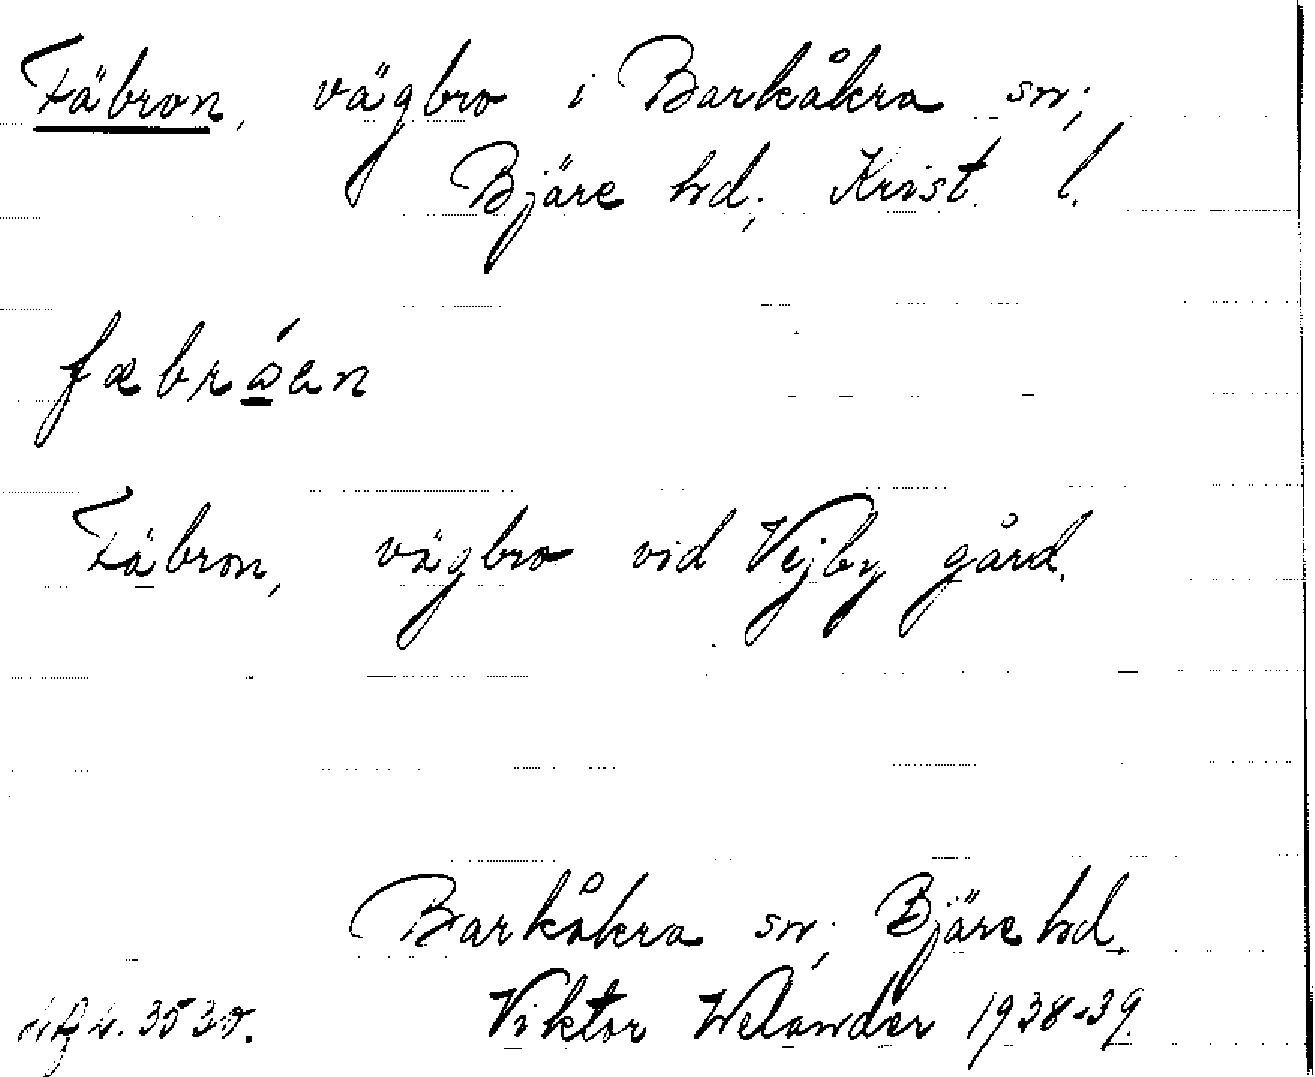 Fäbron, vägbro i Barkåkra sn;
Bjäre hd; Krist. l.
fæbrǻen
Fäbron, vägbro vid Vejby gård.
Barkåkra sn; Bjäre hd.
3530. Viktor Welander 1938-39.